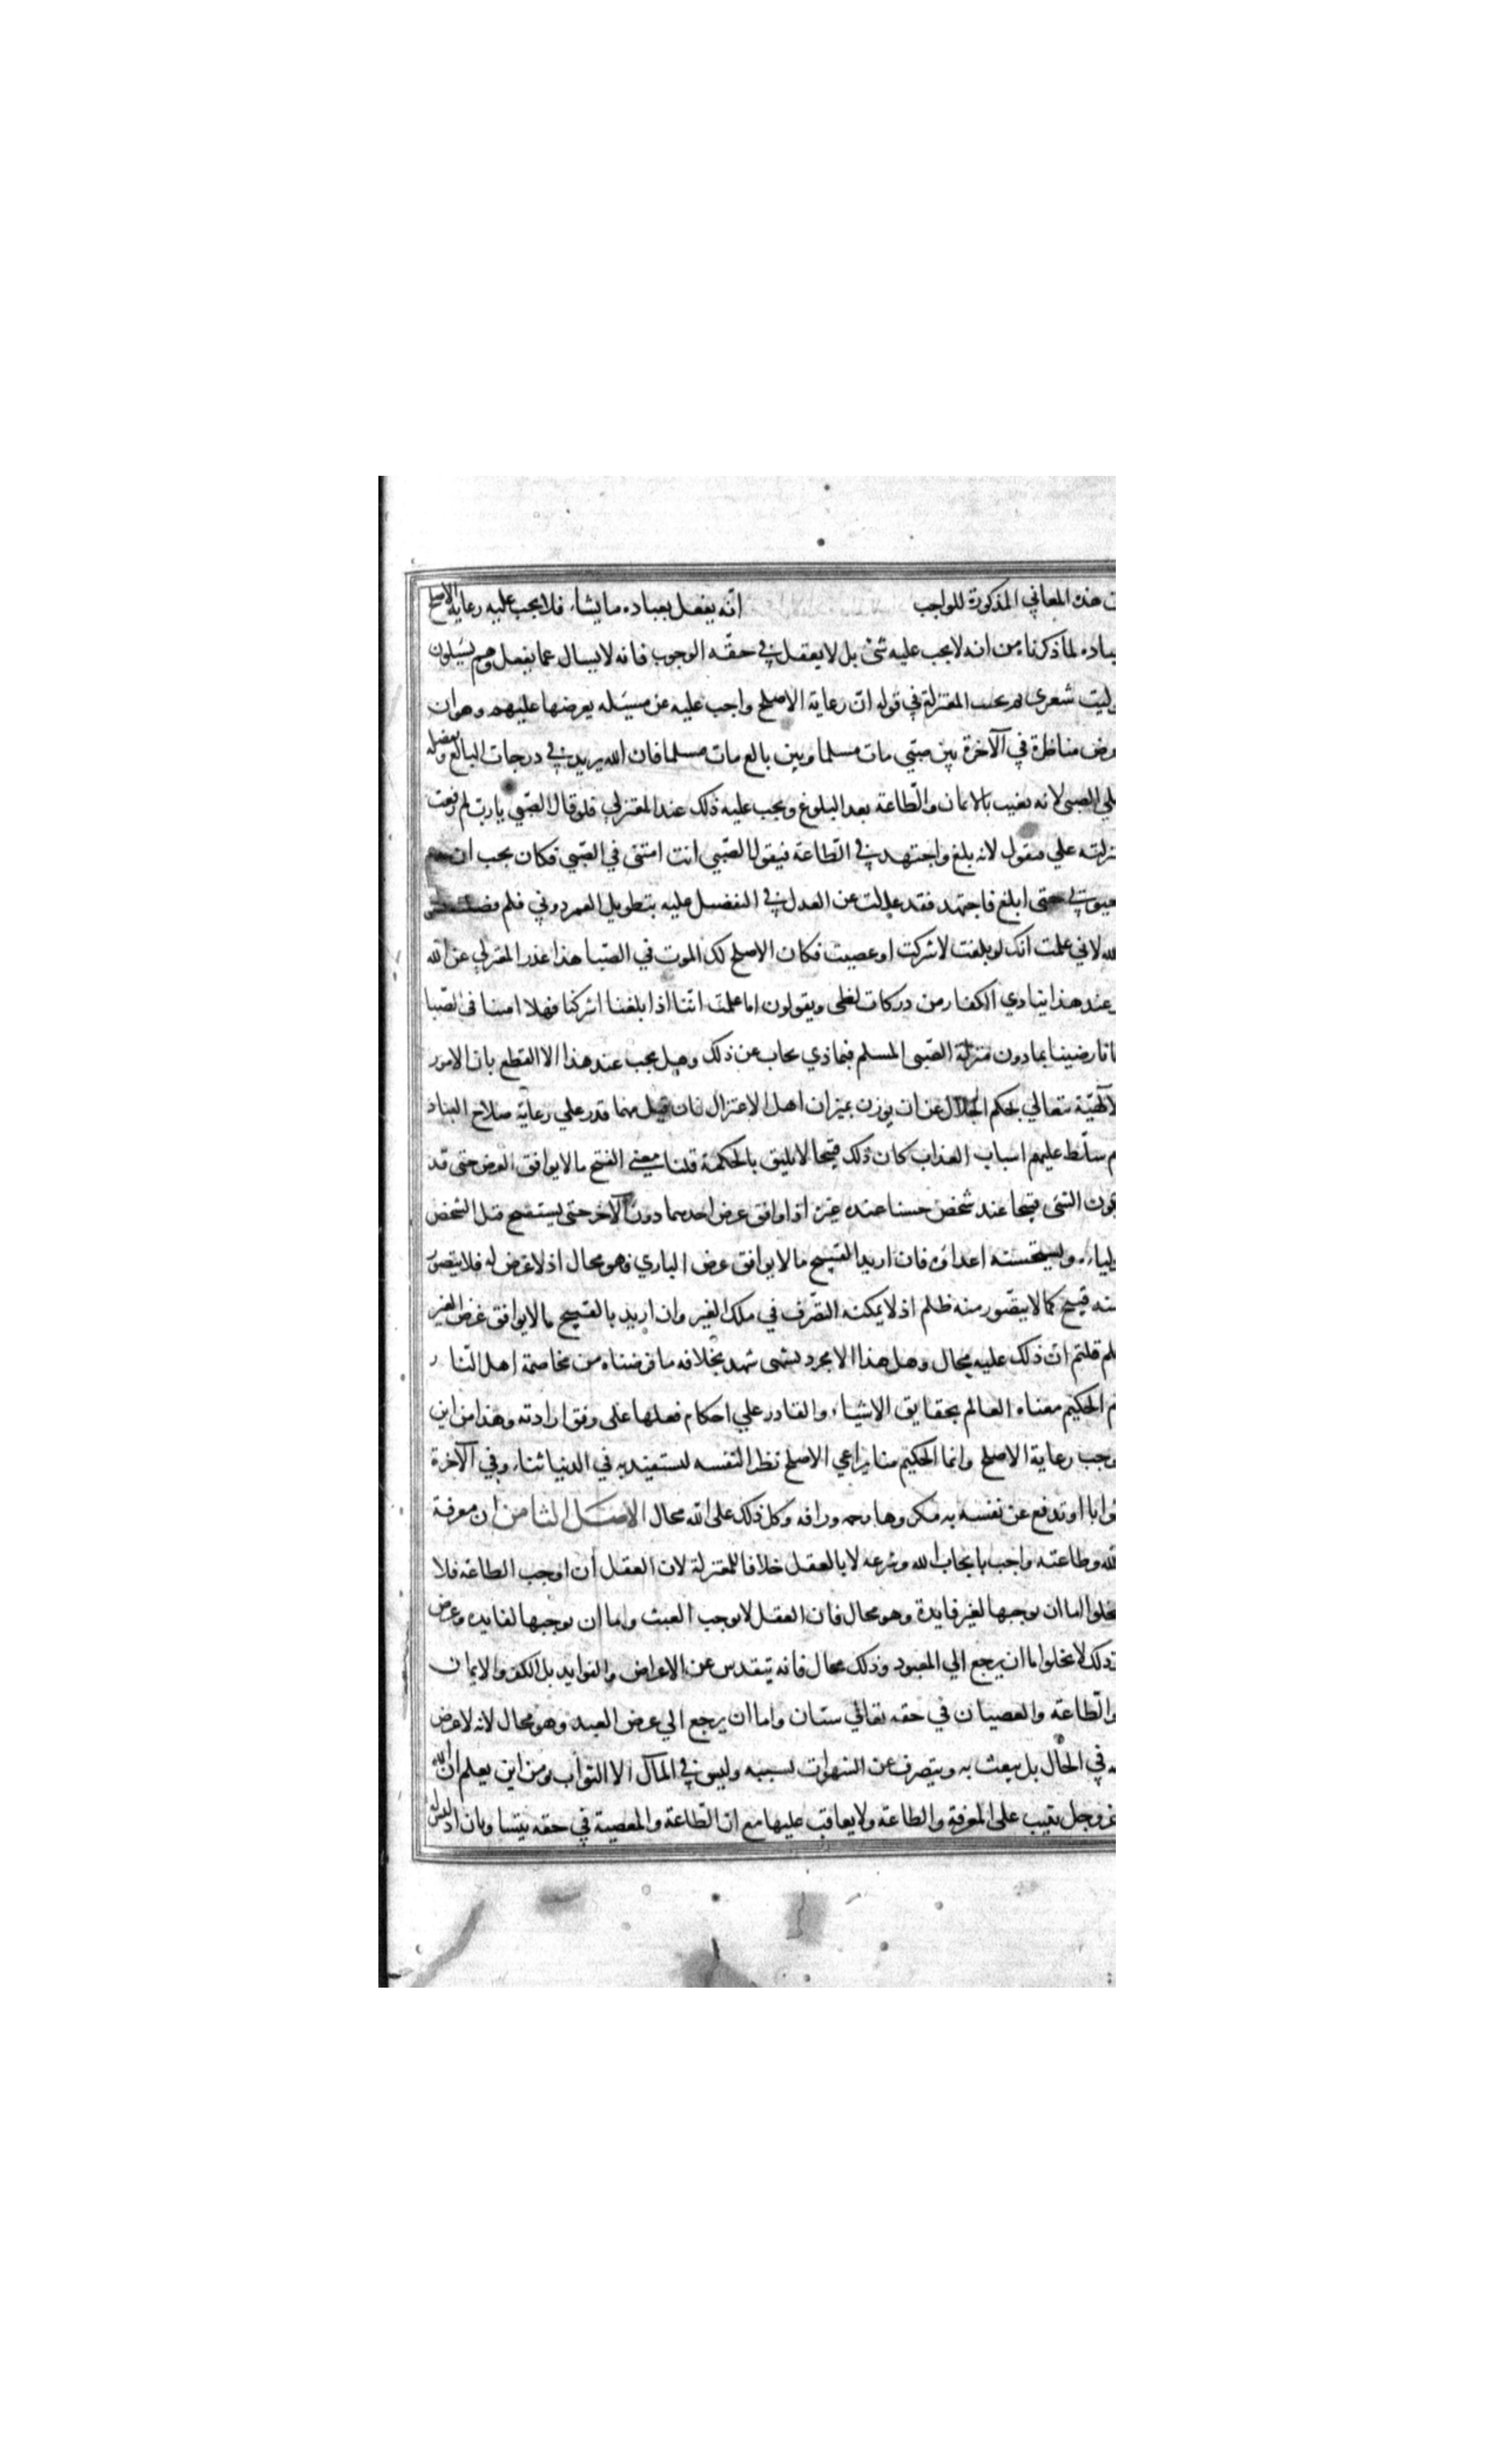 هذه المعاني المذكورة للواجب انه يفعل بعباده ما يشاء فلا يجب عليه رعاية الاصلح
لما ذكرناه من انه لا يجب عليه شئ بل لا يعقل في حقه الوجوب فانه لا يسال عما يفعل وهم يسٔلون
وليت شعري المعتزلة في قوله ان رعاية الاصلح واجب عليه عن مسئله يعرضها عليهم وهو ان
مناظرة في الآخرة بين صبي مات مسلما وبين بالغ مات مسلما فان الله يزيد في درجات البالغ
الصبي لانه بالايمان والطاعة بعد البلوغ ويجب عليه ذلك عند المعتزلي فلو قال الصبي يا رب لم رفعت
علي فيقول لانه بلغ واجتهد في الطاعة فيقول الصبي انت امتني في الصبي فكان يجب ان
حتى ابلغ فاجتهد فقد عدلت عن العدل في التفضل عليه بتطويل العمر دوني فلم
لاني علمت انك لو بلغت لاشركت او عصيت فكان الاصلح لك الموت في الصبا هذا عذر المعتزلي عن الله
وعند هذا ينادي الكفار من دركات لظى ويقولون اما علمت اننا اذا بلغنا اشركنا فهلا امتنا في الصبا
رضينا بما دون منزلة الصبي المسلم فبماذي يجاب عن ذلك وهل يجب عند هذا الا القطع بان الامور
الالهية تتعالي بحكم الجلال عن ان يوزن بميزان اهل الاعتزال فان قيل مهما قدر علي رعاية صلاح العباد
سلط عليهم اسباب العذاب كان ذلك قبيحا لا يليق بالحكمة قلنا معنى القبح ما لا يوافق الغرض حتى قد
الشئ قبيحا عند شخص حسنا عند غيره اذا وافق غرض احدهما دون الآخر حتى يستقبح قتل الشخص
ويستحسنه اعداؤه فان اريد القبيح ما لا يوافق غرض الباري فهو محال اذ لا غرض له فلا يتصور
منه قبيح كما لا يتصور منه ظلم اذ لا يمكنه التصرف في ملك الغير وان اريد بالقبيح ما لا يوافق غرض الغير
فلم قلتم ان ذلك عليه محال وهل هذا الا مجرد تشهى شهد بخلافه ما فرضناه من مخاصمة اهل النار
الحكيم معناه العالم بحقايق الاشياء والقادر علي احكام فعلها على وفق ارادته وهذا من اين
رعاية الاصلح وانما الحكيم منا يراعي الاصلح نظرا لنفسه ليستفيد به في الدنيا ثناء وفي الآخرة
ثوابا او تدفع عن نفسه به ورافه وكل ذلك على الله محال الاصل الثامن ان معرفة
الله وطاعته واجب بايجاب الله وشرعه لا بالعقل خلافا للمعتزلة لان العقل ان اوجب الطاعة فلا
يخلوا اما ان يوجبها لغير فايدة وهو محال فان العقل لا يوجب العبث واما ان يوجبها لفايده وغرض
لا يخلوا اما ان يرجع الي المعبود وذلك محال فانه يتقدس عن الاغراض والفوايد بل الكفر والايمان
والطاعة والعصيان في حقه تعالي سيان واما ان يرجع الي غرض العبد وهو محال لانه لا غرض
في الحال بل يبعث به ويتصرف عن الشهوات بسببه وليس في المآل الا الثواب ومن اين يعلم ان الله
عز وجل يثيب على المعرفة والطاعة ولا يعاقب عليها مع ان الطاعة والمعصية في حقه يتساويان